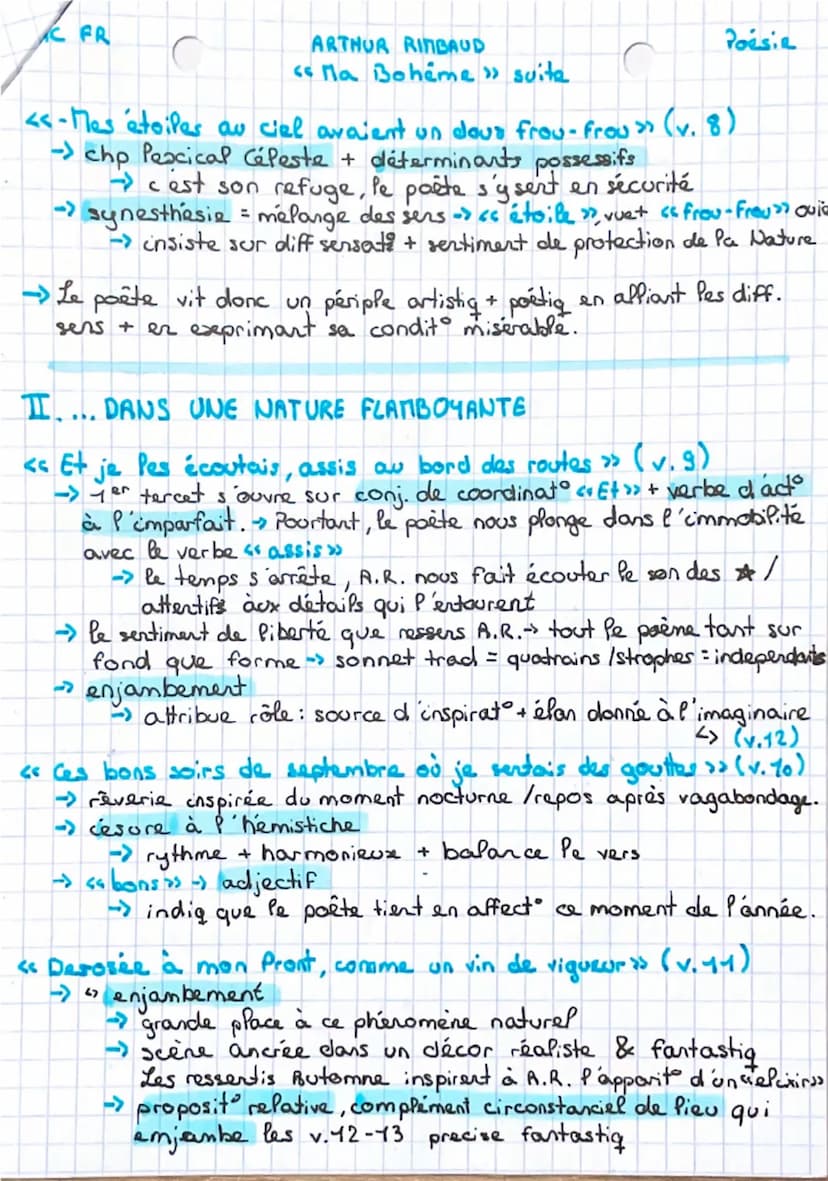 AC FR
ARTHUR RIMBAUD
Poésie
<< Ma Bohème >> suite
<<-Mes étoiles au ciel avaient un doux frou-frou>> (v. 8)
-> chp lexical Céleste + déterminants possessifs
-> c'est son refuge, le poète s'y sent en sécurité
-> synesthésie = mélange des sens -> << étoile >>, vue + << frou-frou>> ouïe
-> insiste sur diff sensat° + sentiment de protection de la Nature
-> Le poète vit donc un périple artistiq + poétiq en alliant les diff.
sens + en exeprimant sa condit° misérable.
II. ... DANS UNE NATURE FLAMBOYANTE
<< Et je les écoutais, assis au bord des routes >> (v.9)
-> 1er tercet s'ouvre sur conj. de coordinat° <<Et>> + verbe d'act°
à l'imparfait. -> Pourtant, le poète nous plonge dans l'immobilité
avec le verbe << assis>>
-> le temps s'arrête, A.R. nous fait écouter le son des ★ /
attentifs aux détails qui l'entourent
-> le sentiment de liberté que ressens A.R.-> tout le poème tant sur
fond que forme -> sonnet trad = quatrains /strophes = independants
-> enjambement
-> attribue rôle : source d'inspirat° + élan donné à l'imaginaire
↳ (v.12)
<< Ces bons soirs de septembre où je sentais des gouttes >> (v.10)
-> rêverie inspirée du moment nocturne /repos après vagabondage.
-> césure à l'hémistiche
-> rythme + harmonieux + balance le vers
-> << bons >> -> adjectif
-> indiq que le poète tient en affect° ce moment de l'année.
<< De rosée à mon front, comme un vin de vigueur >> (v.11)
-> ↳ enjambement
-> grande place à ce phénomène naturel
-> scène ancrée dans un décor réaliste & fantastiq
Les ressentis Automne inspirent à A.R. l'apparit° d'un <<elixir>>
-> proposit° relative, complément circonstanciel de lieu qui
enjambe les v.12-13 precise fantastiq